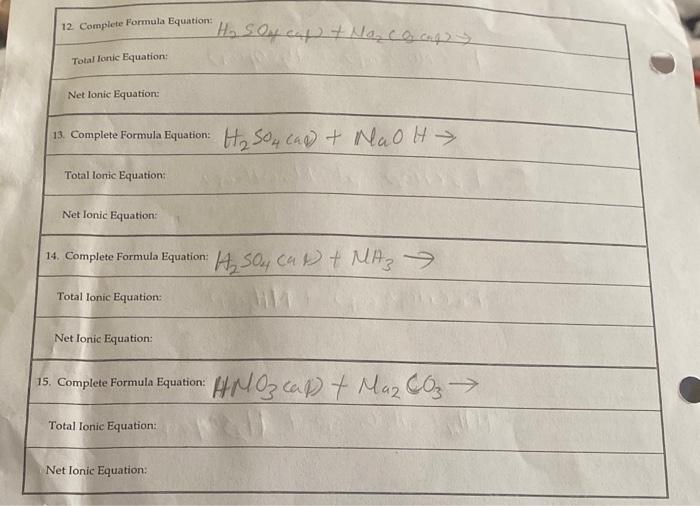 12. Complete Formula Equation: H₂SO₄(aq) + Na₂CO₃(aq) →
Total Ionic Equation:
Net Ionic Equation:
13. Complete Formula Equation: H₂SO₄(aq) + NaOH →
Total Ionic Equation:
Net Ionic Equation:
14. Complete Formula Equation: H₂SO₄(aq) + NH₃ →
Total Ionic Equation:
Net Ionic Equation:
15. Complete Formula Equation: HNO₃(aq) + Na₂CO₃ →
Total Ionic Equation:
Net Ionic Equation: